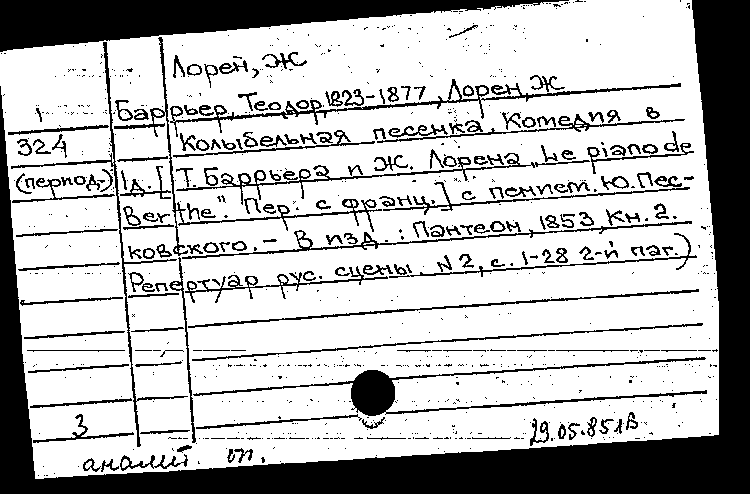 Лорен, Ж
Барьер, Теодор, 1823-1877, Лорен, Ж
324 Колыбельная песенка. Комедия в
(период.) 1д. [Т. Баррьера и Ж. Лорена „Le piano de
Berthe". Пер. с франц.] с пением. Ю. Пес-
ковского. - В изд.: Пантеон, 1853, Кн. 2.
Репертуар рус. сцены. N 2, с. 1-28 2-й паг.)
3
аналит. оп.
29.05.85